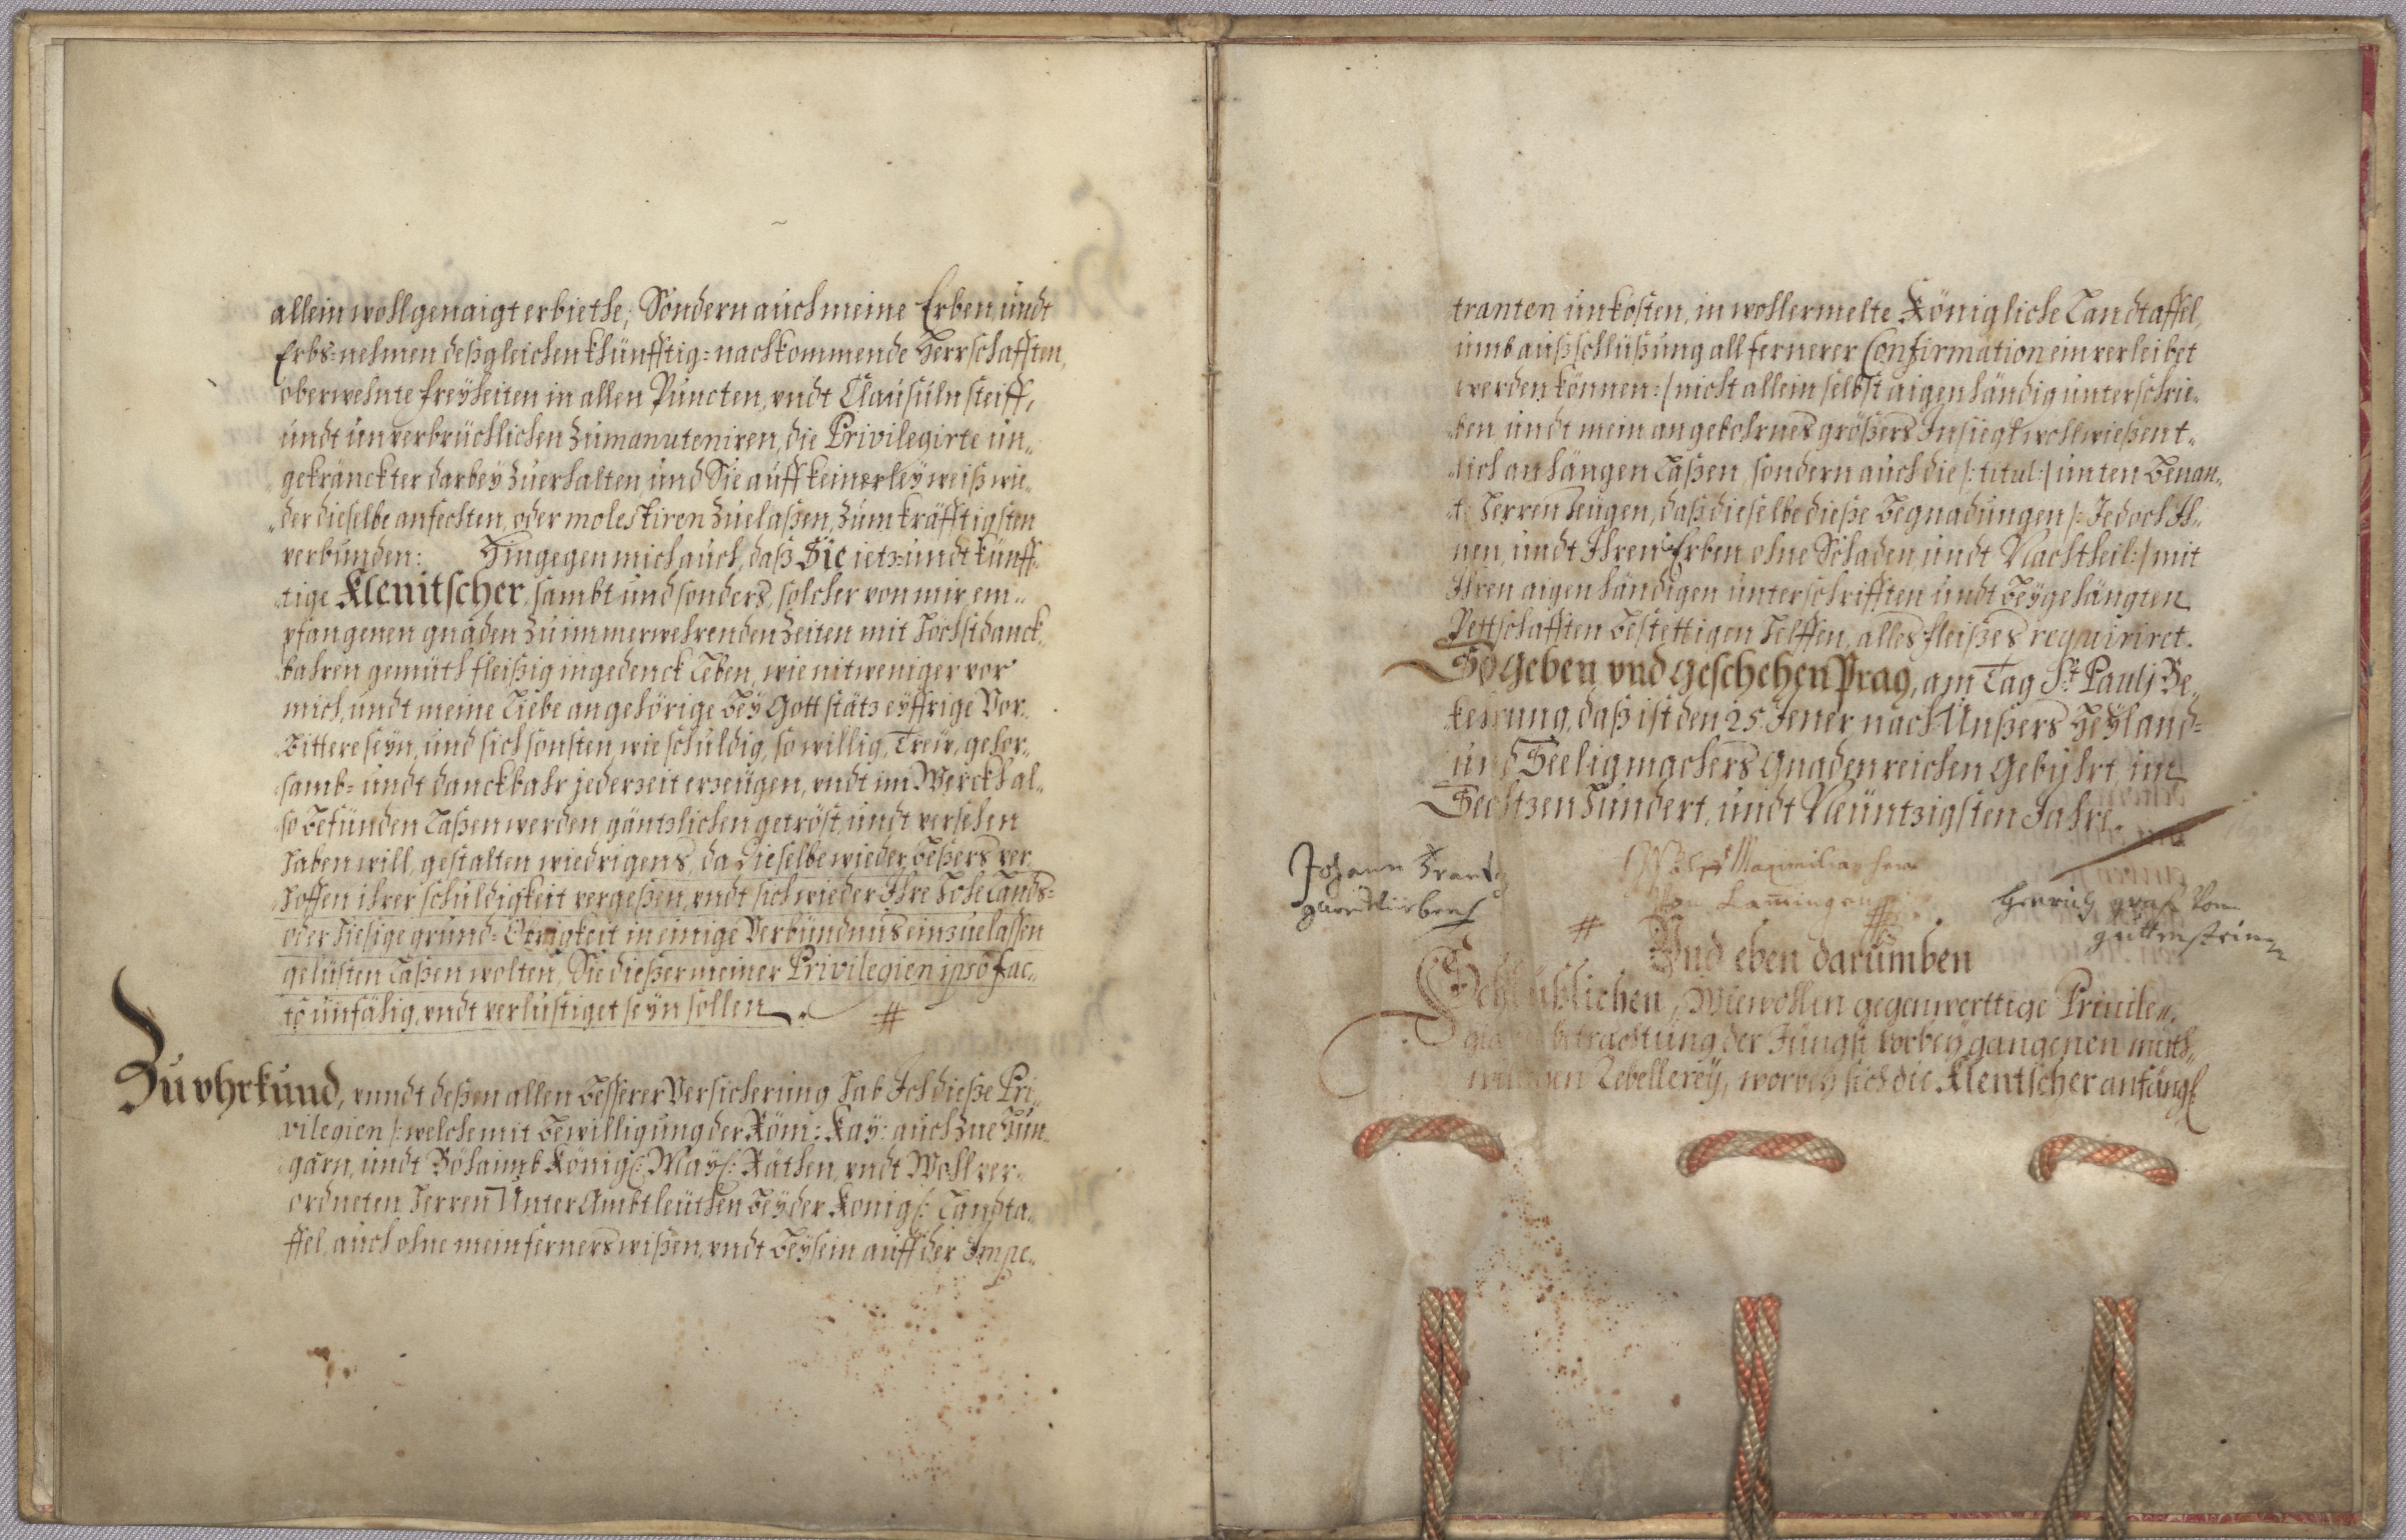 allein wollgenaigt erbiethe, Sondern auch meine Erben undt
Erbs=nehmen deßgleichen khünfftig=nachkommende Herrschafften,
oberwehnte freyheiten in allen Puncten, vndt Clausuln steiff,
undt unverbrüchlichen zu manuteniren, die Privilegirte un„
gekränckter darbey zu erhalten, und Sie auff keinerley weiß wie„
„der dieselbe anfechten, oder molestiren zuelaßen, zum kräfftigsten
verbunden: Hingegen mich auch, daß Sie ietz= undt künff„
tige Klenitscher, sambt und sonders, solcher von mir em„
pfangenen gnaden zu immerwehrenden Zeiten mit höchst danck„
bahren gemüth fleißig ingedenck leben, wie nit weniger vor
mich, undt meine liebe angehörige bey Gott stätz eyffrige Vor„
bittere seyn, und sich sonsten, wie schuldig, so willig, Treü, gehor„
samb= undt danckbahr jederzeit erzeugen, vndt im Werckh al„
so befunden laßen werden, gäntzlichen getröst, undt versehen
haben will, gestalten wiedrigens, da dieselbe wieder beßers ver„
hoffen ihrer schuldigkeit vergeßen, vndt sich wieder Ihre hohe Lands=
oder hiesige grund=Obrigkeit in einige Verbündnus einzuelassen
gelüsten laßen wolten, Sie dießer meiner Privilegien ipso fac„
to unfähig, vndt verlustiget seyn sollen. #
Zu vhrkund, vnndt deßen allen besserer Versicherung hab Ich dieße Pri„
vilegien /: welche mit bewilligung der Röm: Kay: auch zue Hun„
garn, undt Böhaimb Königl: May: Räthen, vndt Wohlver„
ordneten Herren Unter Ambtleüthen bey der Königl: Landta„
ffel, auch ohne mein ferners wißen, vndt beysein auff der Impe„
tranten unkosten, in wollermelte Königliche Landtaffel,
umb außschlüßung all fernerer Confirmation einverleibet
werden können :/ nicht allein selbst aigenhändig unterschrie„
ben, undt mein angebohrnes größers Insiegl wollwießent„
lich anhängen laßen, sondern auch die /: titul :/ unten benan„
t: Herren Zeugen, daß dieselbe dieße Begnadungen /: Jedoch Ih„
nen, undt Ihren Erben ohne Schaden, undt Nachtheil :/ mit
Ihren aigenhändigen unterschrifften undt beygehängten
Pettschafften bestettigen helffen, alles fleißes requiriret.
So Geben vnd Geschehen Prag, am Tag St: Pauli Be„
kehrung, daß ist den 25. Jener, nach Unßers Heyland=
und Seeligmachers Gnadenreichen Gebuhrt, im
Sechtzen hundert, undt Neüntzigsten Jahre.
Johann Frantz
Wolf Maximilian herr
Von Lamingen
Henrich graf Von
guttenstein
# #
Und eben darumben
Schlüßlichen, Wiewollen gegenwerttige Privile„
betrachtung der Jüngst vorbey gangenen muth„
willigen Rebellerey, worbey sich die Klentscher anfängl: